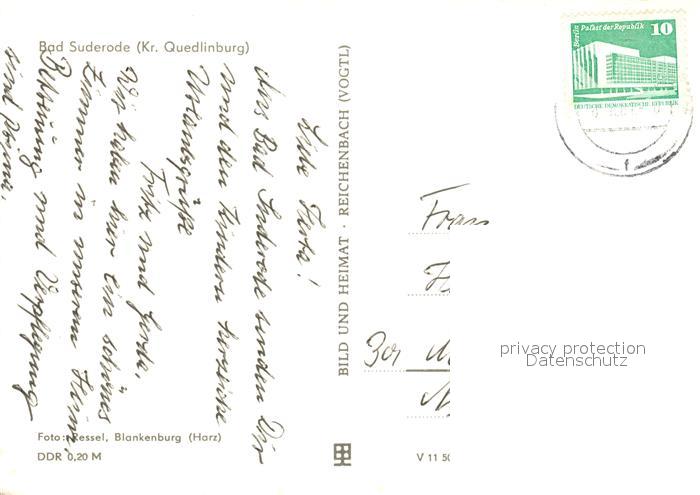 Bad Suderode (Kr. Quedlinburg)
Liebe Herta!
Aus Bad Suderode senden Dir
und den Kindern herzliche
Urlaubsgrüße
Fritz und Gerda.
Wir haben hier ein schönes
Zimmer in unserem Heim,
Betreuung und Verpflegung
sind prima.
Foto: Kessel, Blankenburg (Harz)
DDR 0,20 M
BILD UND HEIMAT · REICHENBACH (VOGTL)
V 11 50
Berlin Palast der Republik 10
DEUTSCHE DEMOKRATISCHE REPUBLIK
Frau
H
M
N
privacy protection
Datenschutz